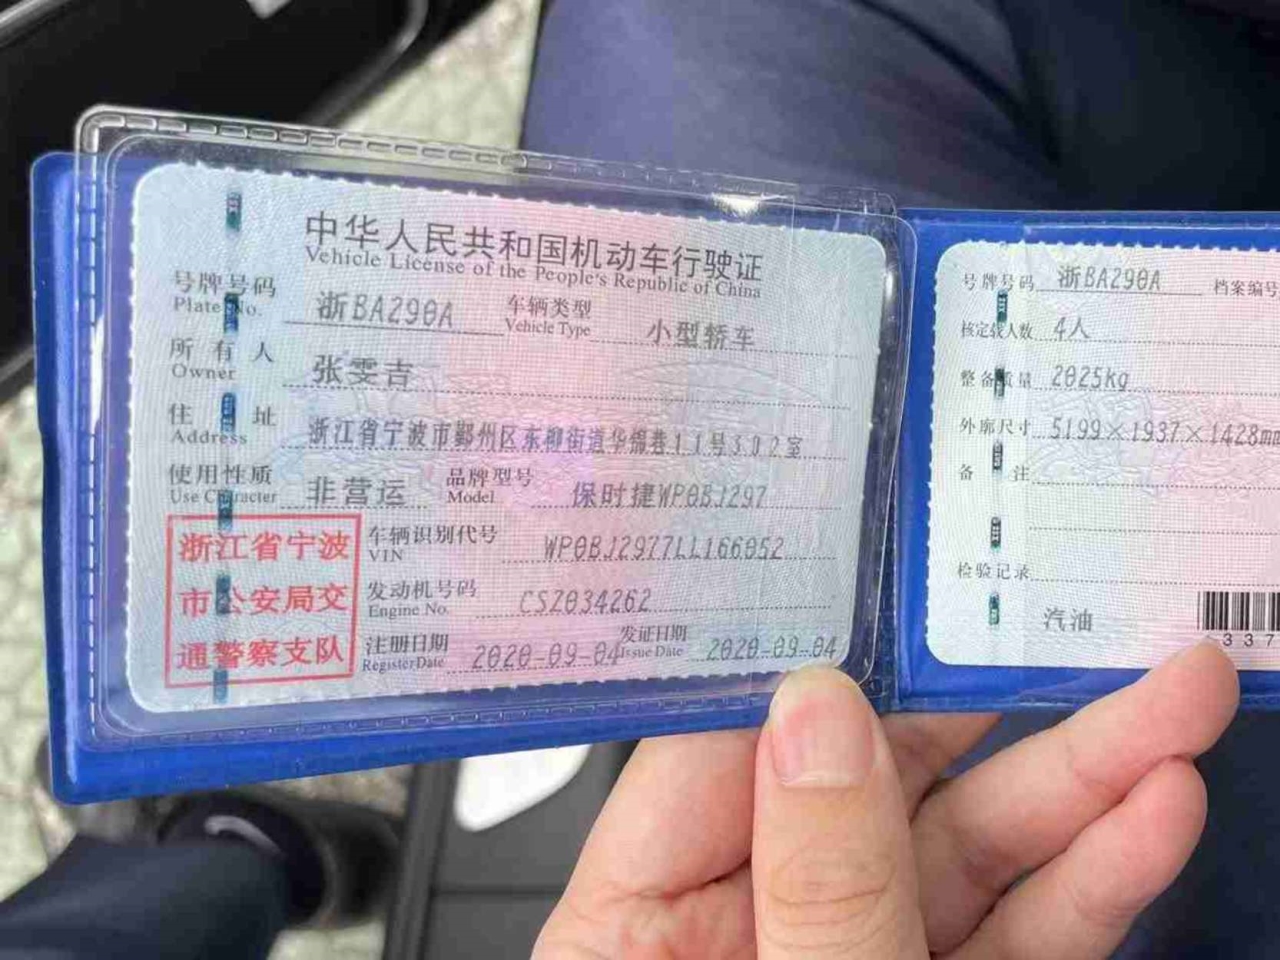 中华人民共和国机动车行驶证
Vehicle License of the People's Republic of China
号牌号码 浙BA290A 车辆类型 小型轿车
Plate No. Vehicle Type
所有人 张雯吉
Owner
住址 浙江省宁波市鄞州区东柳街道华锦巷11号302室
Address
使用性质 非营运 品牌型号 保时捷WP0BJ297
Use Character Model
浙江省宁波
市公安局交
通警察支队
车辆识别代号 WP0BJ2977LL166052
VIN
发动机号码 CSZ034262
Engine No.
注册日期 2020-09-04 发证日期 2020-09-04
Register Date Issue Date
号牌号码 浙BA290A 档案编号
核定载人数 4人
整备质量 2025kg
外廓尺寸 5199×1937×1428mm
备注
检验记录
汽油
337